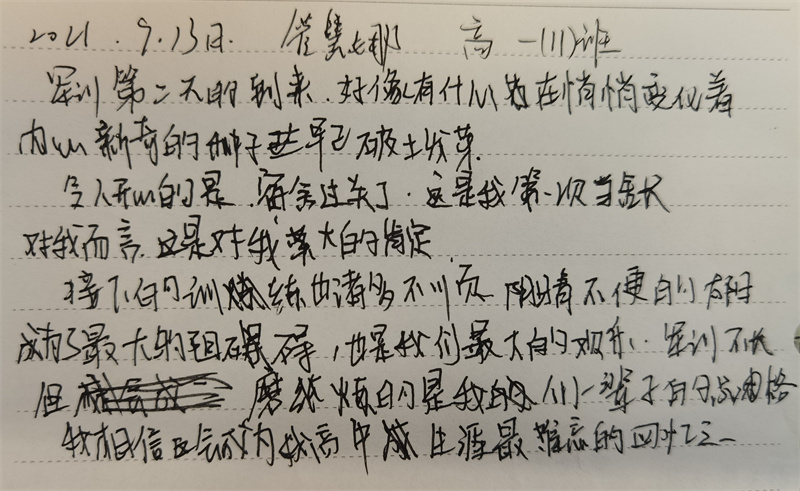 2021.9.13日. 高一(11)班
军训第二天的到来.好像有什么在悄悄变化着
内心新奇的种子也早已破土发芽.
令人开心的是.宿舍过关了.这是我第一次当舍长
对我而言.这是对我莫大的肯定.
接下的训练也诸多不顺.阴晴不便的太阳
成为了最大的阻碍,也是我们最大的欢乐.军训不长
但 磨练的是我们一辈子的
我相信它会成为我高中生涯最难忘的回忆之一